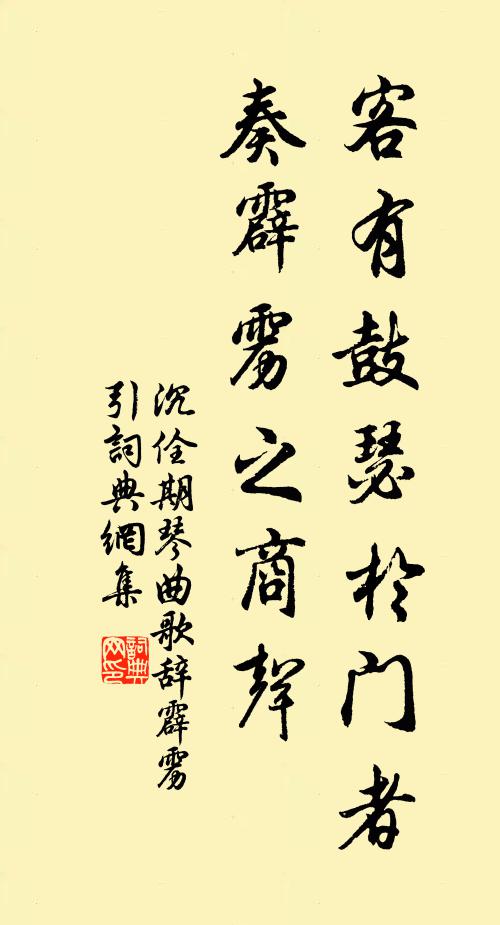 客有鼓瑟於门者
奏霹雳之商聲
沉佺期琴曲歌辞霹雳
引詞典網集
詞典
网印